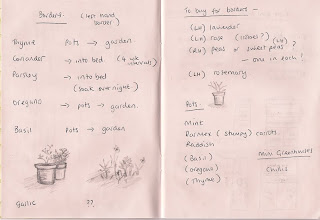 Borders. (left hand
border)
Thyme Pots → garden.
Coriander → into bed. (4 wk
intervals)
Parsley → into bed
(soak overnight)
Oregano → pots → garden.
Basil Pots → garden
Garlic ??
To buy for borders -
(LH) lavender
(LH) rose (roses?) ?
(RH) peas or sweet peas?
- one in each?
(LH) rosemary
Pots -
Mint
Parmex (stumpy) carrots
Raddish
(Basil)
(Oregano)
(Thyme)
Mini Greenhouses
Chillis